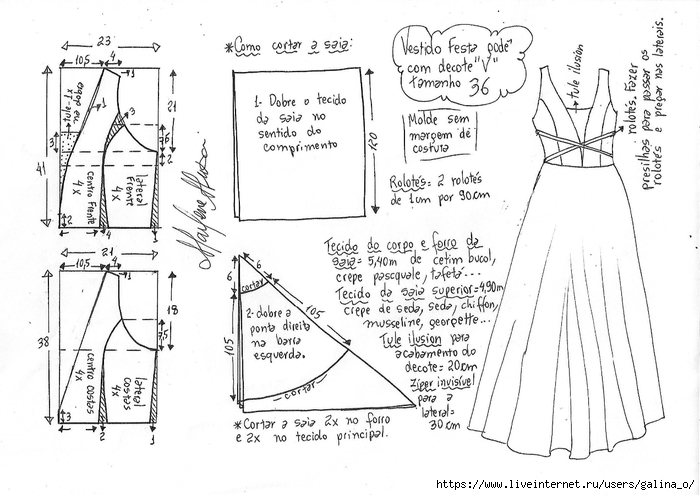 23
10,5
4
1
1
21
3
6
2
41
3
tule-1x
dobra eu.
centro frente
4x
lateral
frente
4x
2
4
1
21
10,5
4
1
18
7,5
38
centro costas
4x
lateral
costas
4x
3
2
1
Marlene Mukai
*Como cortar a saia:
1- Dobre o tecido
da saia no
sentido do
comprimento
120
6
6
cortar
105
105
2- dobre a
ponta direita
na barra
esquerda.
cortar
*Cortar a saia 2x no forro
e 2x no tecido principal.
Vestido Festa podé
com decote "V"
tamanho 36
Molde sem
margem de
costura
Rolotês= 2 rolotês
de 1cm por 90cm
Tecido do corpo e forro da
saia= 5,40m de cetim bucol,
crepe pasquale, tafetá...
Tecido da saia superior=4,90m
crepe de seda, seda, chiffon,
musseline, georgette...
Tule ilusion para
acabamento do
decote= 20cm
Zíper invisível
para a
lateral=
30cm
tule ilusion
rolotês. Fazer
presilhas para passar os
rolotês e pregar nas laterais.
https://www.liveinternet.ru/users/galina_o/